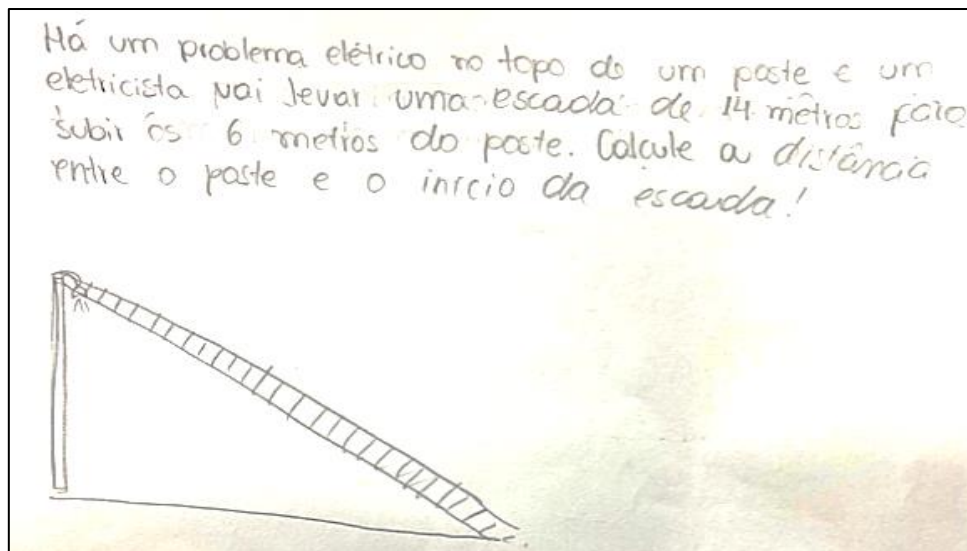 Há um problema elétrico no topo de um poste e um
eletricista vai levar uma escada de 14 metros para
subir os 6 metros do poste. Calcule a distância
entre o poste e o início da escada!